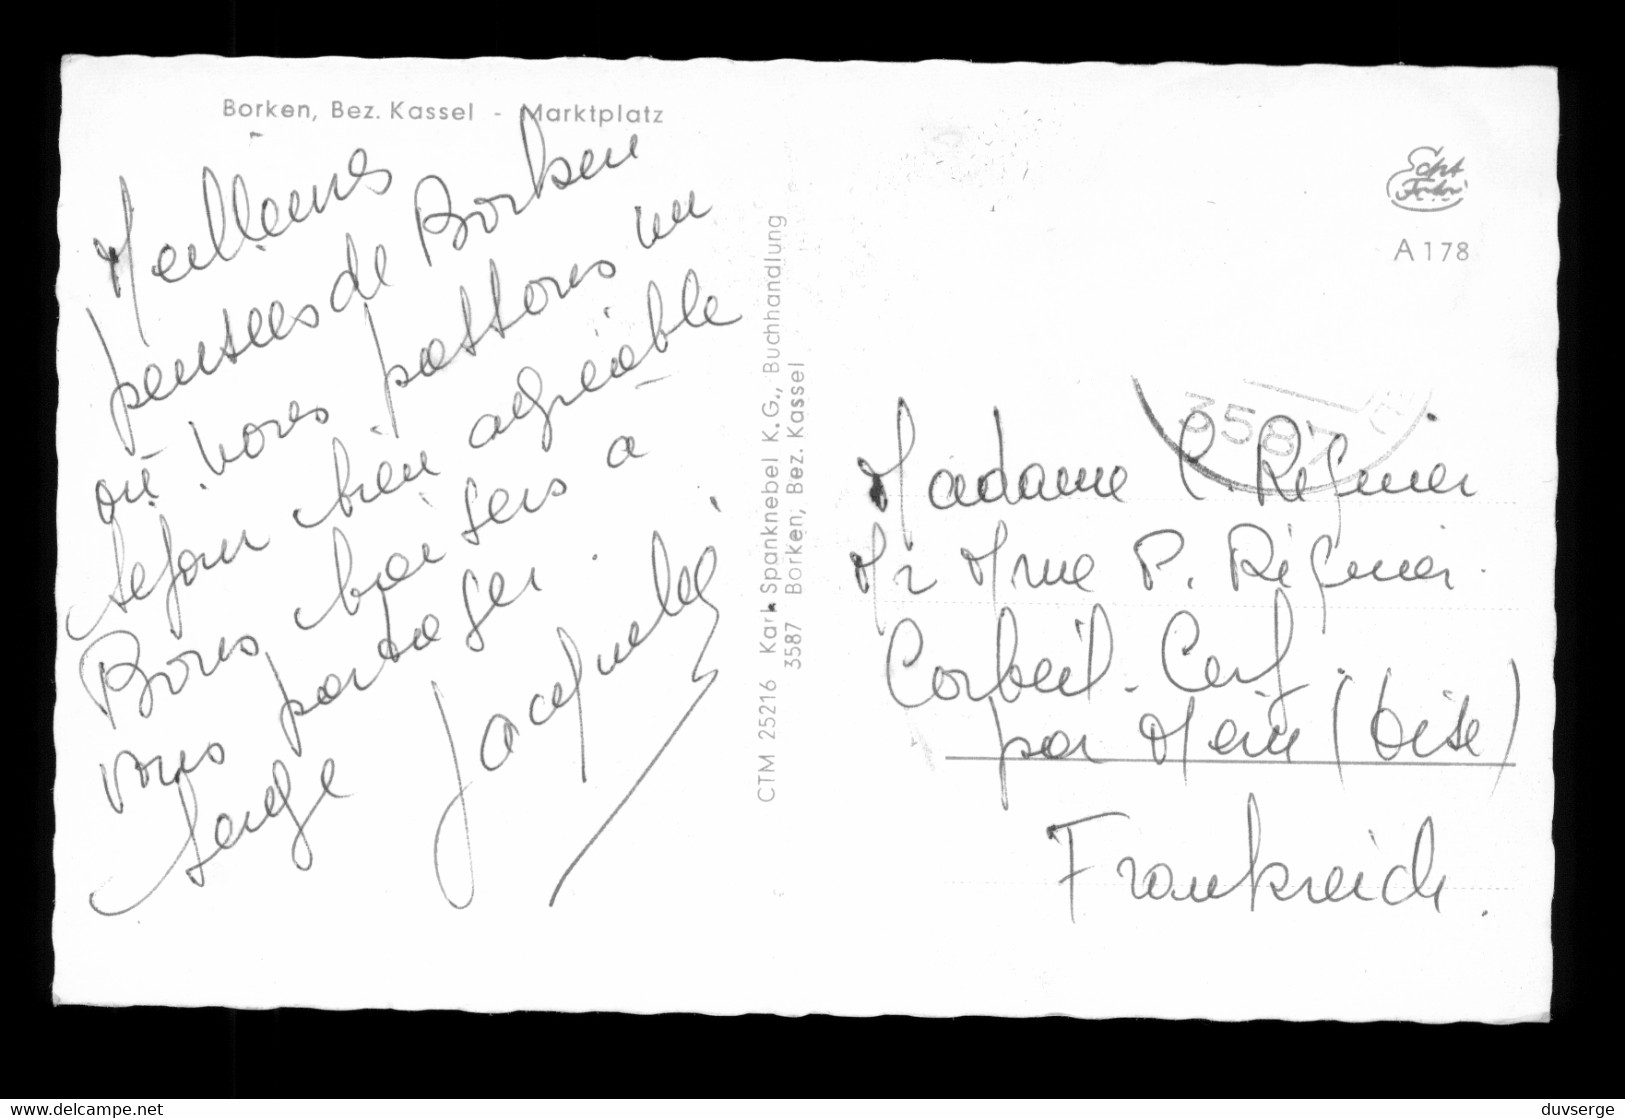 Borken, Bez. Kassel - Marktplatz
Meilleures
pensées de Borken
où nous passons un
séjour bien agréable
Bons baisers à
vous partager.
Serge Jacqueline
CTM 25216 Karl Spanknebel K.G., Buchhandlung
3587 Borken, Bez. Kassel
Echt
Foto
A 178
3587
Madame C. Régnier
Mr Mme P. Régnier.
Corbeil-Cerf.
par Méru (Oise)
Frankreich.
www.delcampe.net
duvserge